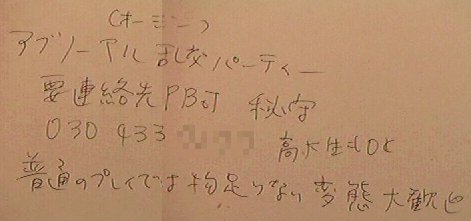 (オージー)
アブノーマル乱交パーティー
要連絡先PB可 秘守
030 433
高校生もOK
普通のプレイでは物足りない変態大歓迎